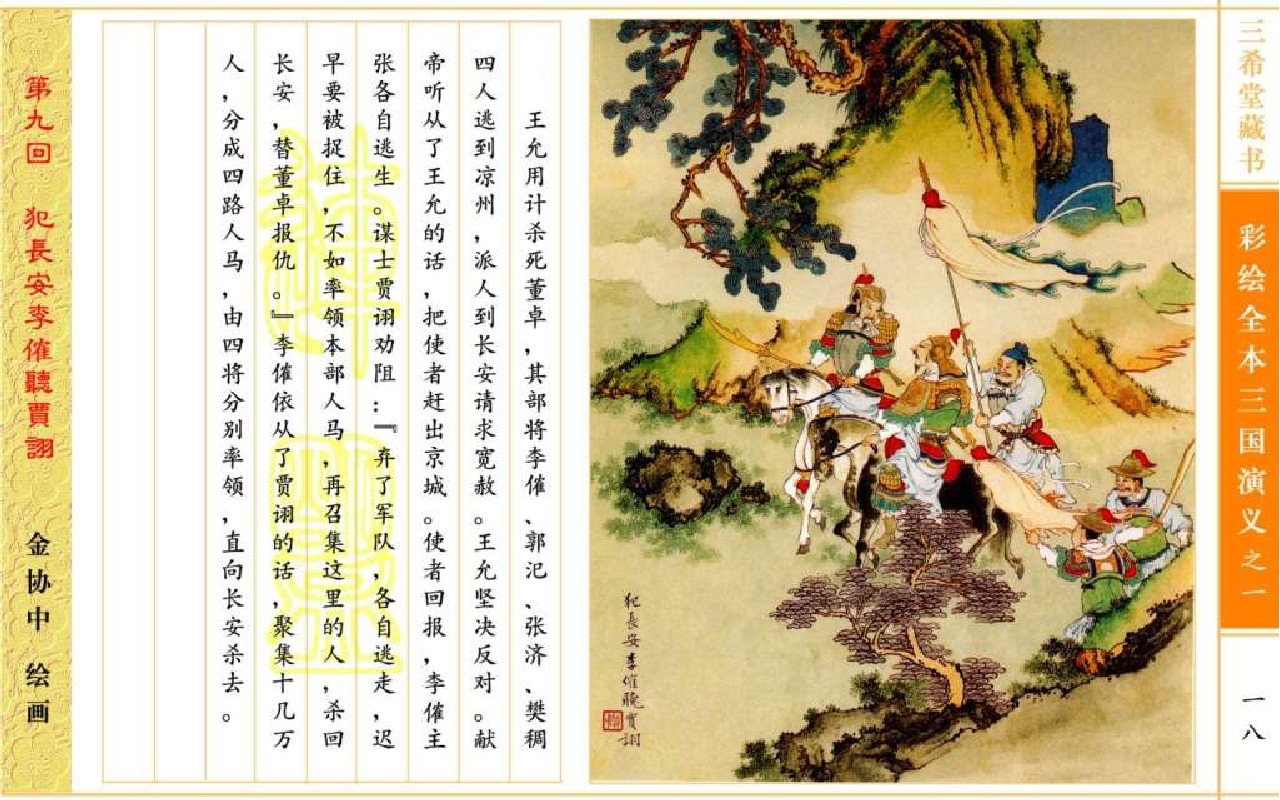 三希堂藏书
彩绘全本三国演义之一
一八
犯長安李傕聽賈詡
王允用计杀死董卓，其部将李傕、郭汜、张济、樊稠
四人逃到凉州，派人到长安请求宽赦。王允坚决反对。献
帝听从了王允的话，把使者赶出京城。使者回报，李傕主
张各自逃生。谋士贾诩劝阻：『弃了军队，各自逃走，迟
早要被捉住，不如率领本部人马，再召集这里的人，杀回
长安，替董卓报仇。』李傕依从了贾诩的话，聚集十几万
人，分成四路人马，由四将分别率领，直向长安杀去。
第九回 犯長安李傕聽賈詡
金协中 绘画